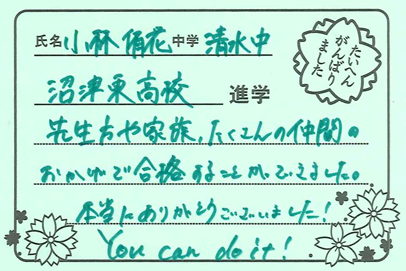 氏名 小林 倩花 中学 清水中
たいへん
がんばり
ました
沼津東高校 進学
先生方や家族、たくさんの仲間の
おかげで合格することができました。
本当にありがとうございました!
You can do it!